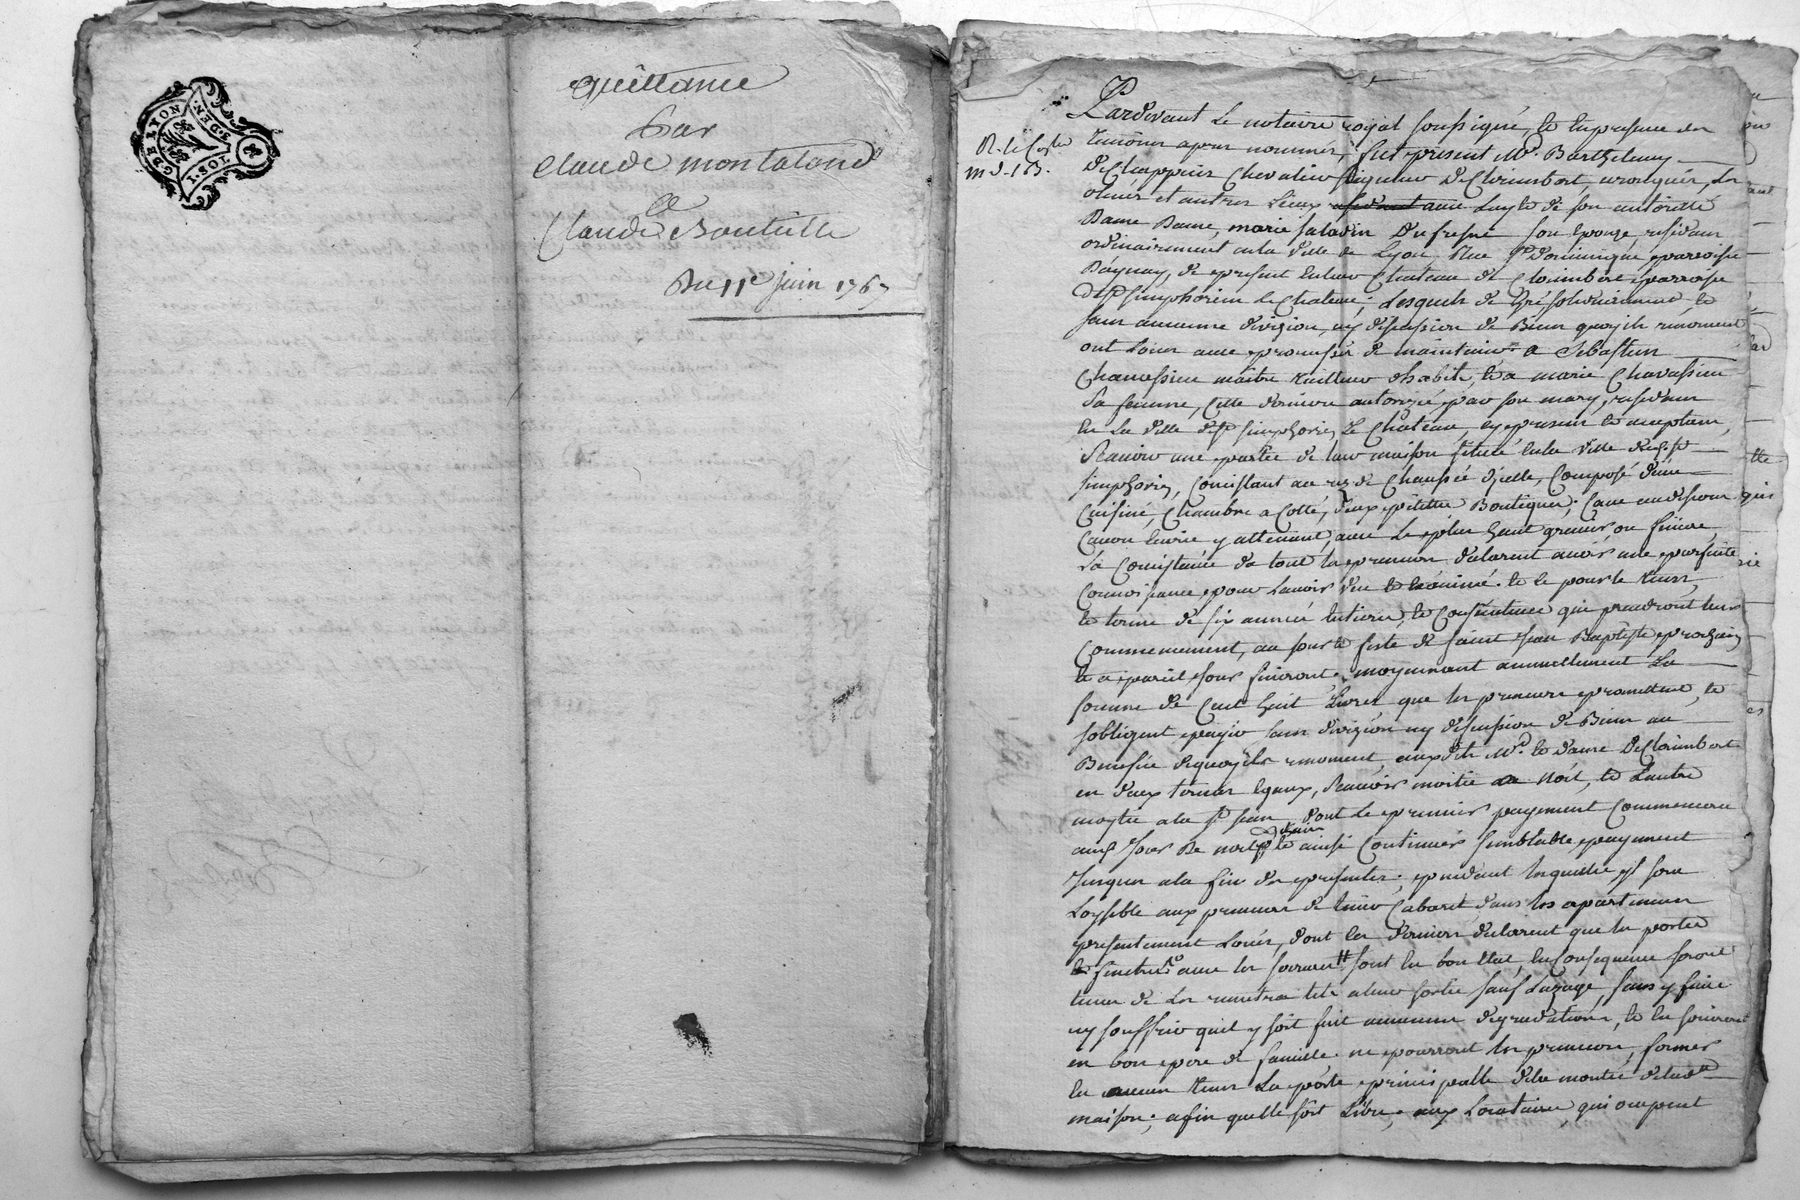 G. DE LYON
1. SOL
3. DEN.
Quittance
Par
Claude montaland
a
Claude Bouteille
Du 11e juin 1767
Pardevant le notaire royal soussigné, et en presence des
temoins apres nommés, fut present Mre. Barthelemy
De Chappuis Chevalier seigneur De Clerimbert,
et autres lieux avec luy et de son autorité
Dame Dame, marie saladin Dufresne son epouze, residant
ordinairement en la ville de Lyon, Rue St Dominique, parroisse
D'aynay, de present en leur Chateau de Clerimbert parroisse
de St simphorien le Chateau; Lesquels de gré solidairement et
sans aucunne division, ny discussion de Biens quoy ils renoncent
ont Loué avec promesse de maintenir a Sebastien
Chavassieu maitre tailleur d'habits, et a marie Chavassieu
sa femme, Cette derniere autorizée par son mary, residant
en la ville de St simphorien le Chateau, cy presents et acceptants,
Scavoir une partie de leur maison située en la ville dudit St
simphorien, Consistant au rez de Chaussée d'icelle, Composé d'une
Cuisine, Chambre a Cotté, deux petittes Boutiques; Cave au dessous
y attenant, avec le plus haut grenier ou feniere,
La Consistance de tout les preneurs declarent avoir une parfaite
Connoissance, pour l'avoir vue et examiné. et ce pour le tems
et terme de six années entieres, et Consecutives qui prendront leur
Commencement, au jour et feste de saint Jean Baptiste prochain
et a pareil jour finiront, moyennant annuellement La
somme de Cent huit Livres que les preneurs promettent, et
s'obligent payer sans division ny discussion de Biens au
Benefice desquoy ils renoncent, auxdits Mr. et Dame De Clerimbert
en deux termes egaux, Scavoir moitié a Noël, et L'autre
moytié a la St Jean, dont le premier payement Commencera
aux jour De noel et ainsi Continuer semblable payement
Jusques a la fin des presentes; pendant lesquelles il sera
Loysible aux preneurs de tenir Cabaret dans les apartemens
presentement Loués, dont les derniers declarent que les portes
et fenetres avec les serrures sont en bon etat, en Consequence seront
tenus de les remettre tels a leur sortie sauf L'uzage, sans y faire
ny souffrir qu'il y soit fait aucunne degradations, et en jouiront
en bon pere de famille. ne pourront les preneurs, fermer
en aucun tems La porte principalle de la montée de lad.
maison, afin qu'elle soit Libre, aux Locataires qui occupent